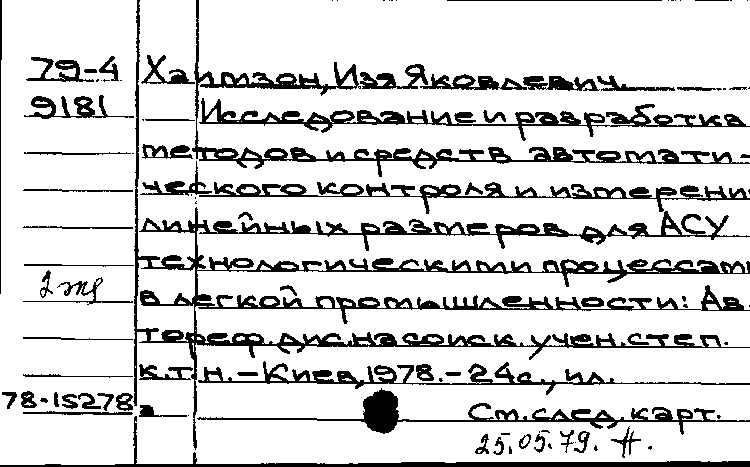 79-4 Хаимзон, Изя Яковлевич.
9181 Исследование и разработка
методов и средств автомати-
ческого контроля и измерени
линейных размеров для АСУ
технологическими процессам
2 экз в легкой промышленности: Ав-
тореф. дис. на соиск. учен. степ.
к.т.н. - Киев, 1978. - 24с., ил.
78-15278а См. след. карт.
25.05.79. Н.